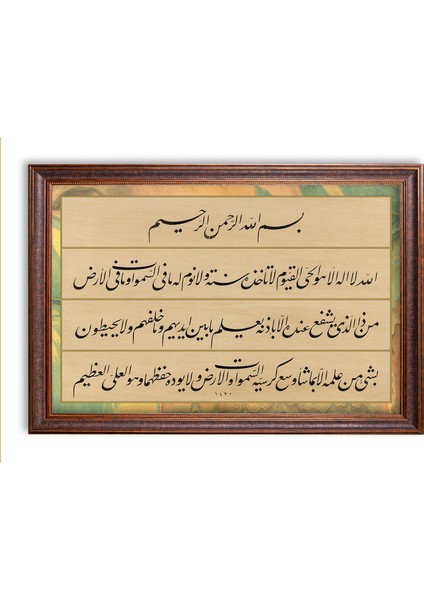 بسم الله الرحمن الرحيم
الله لا اله الا هو الحى القيوم لا تأخذه سنة ولا نوم له ما فى السموات وما فى الأرض
من ذا الذى يشفع عنده الا باذنه يعلم ما بين ايديهم وما خلفهم ولا يحيطون
بشئ من علمه الا بما شاء وسع كرسيه السموات والارض ولا يوده حفظهما وهو العلى العظيم